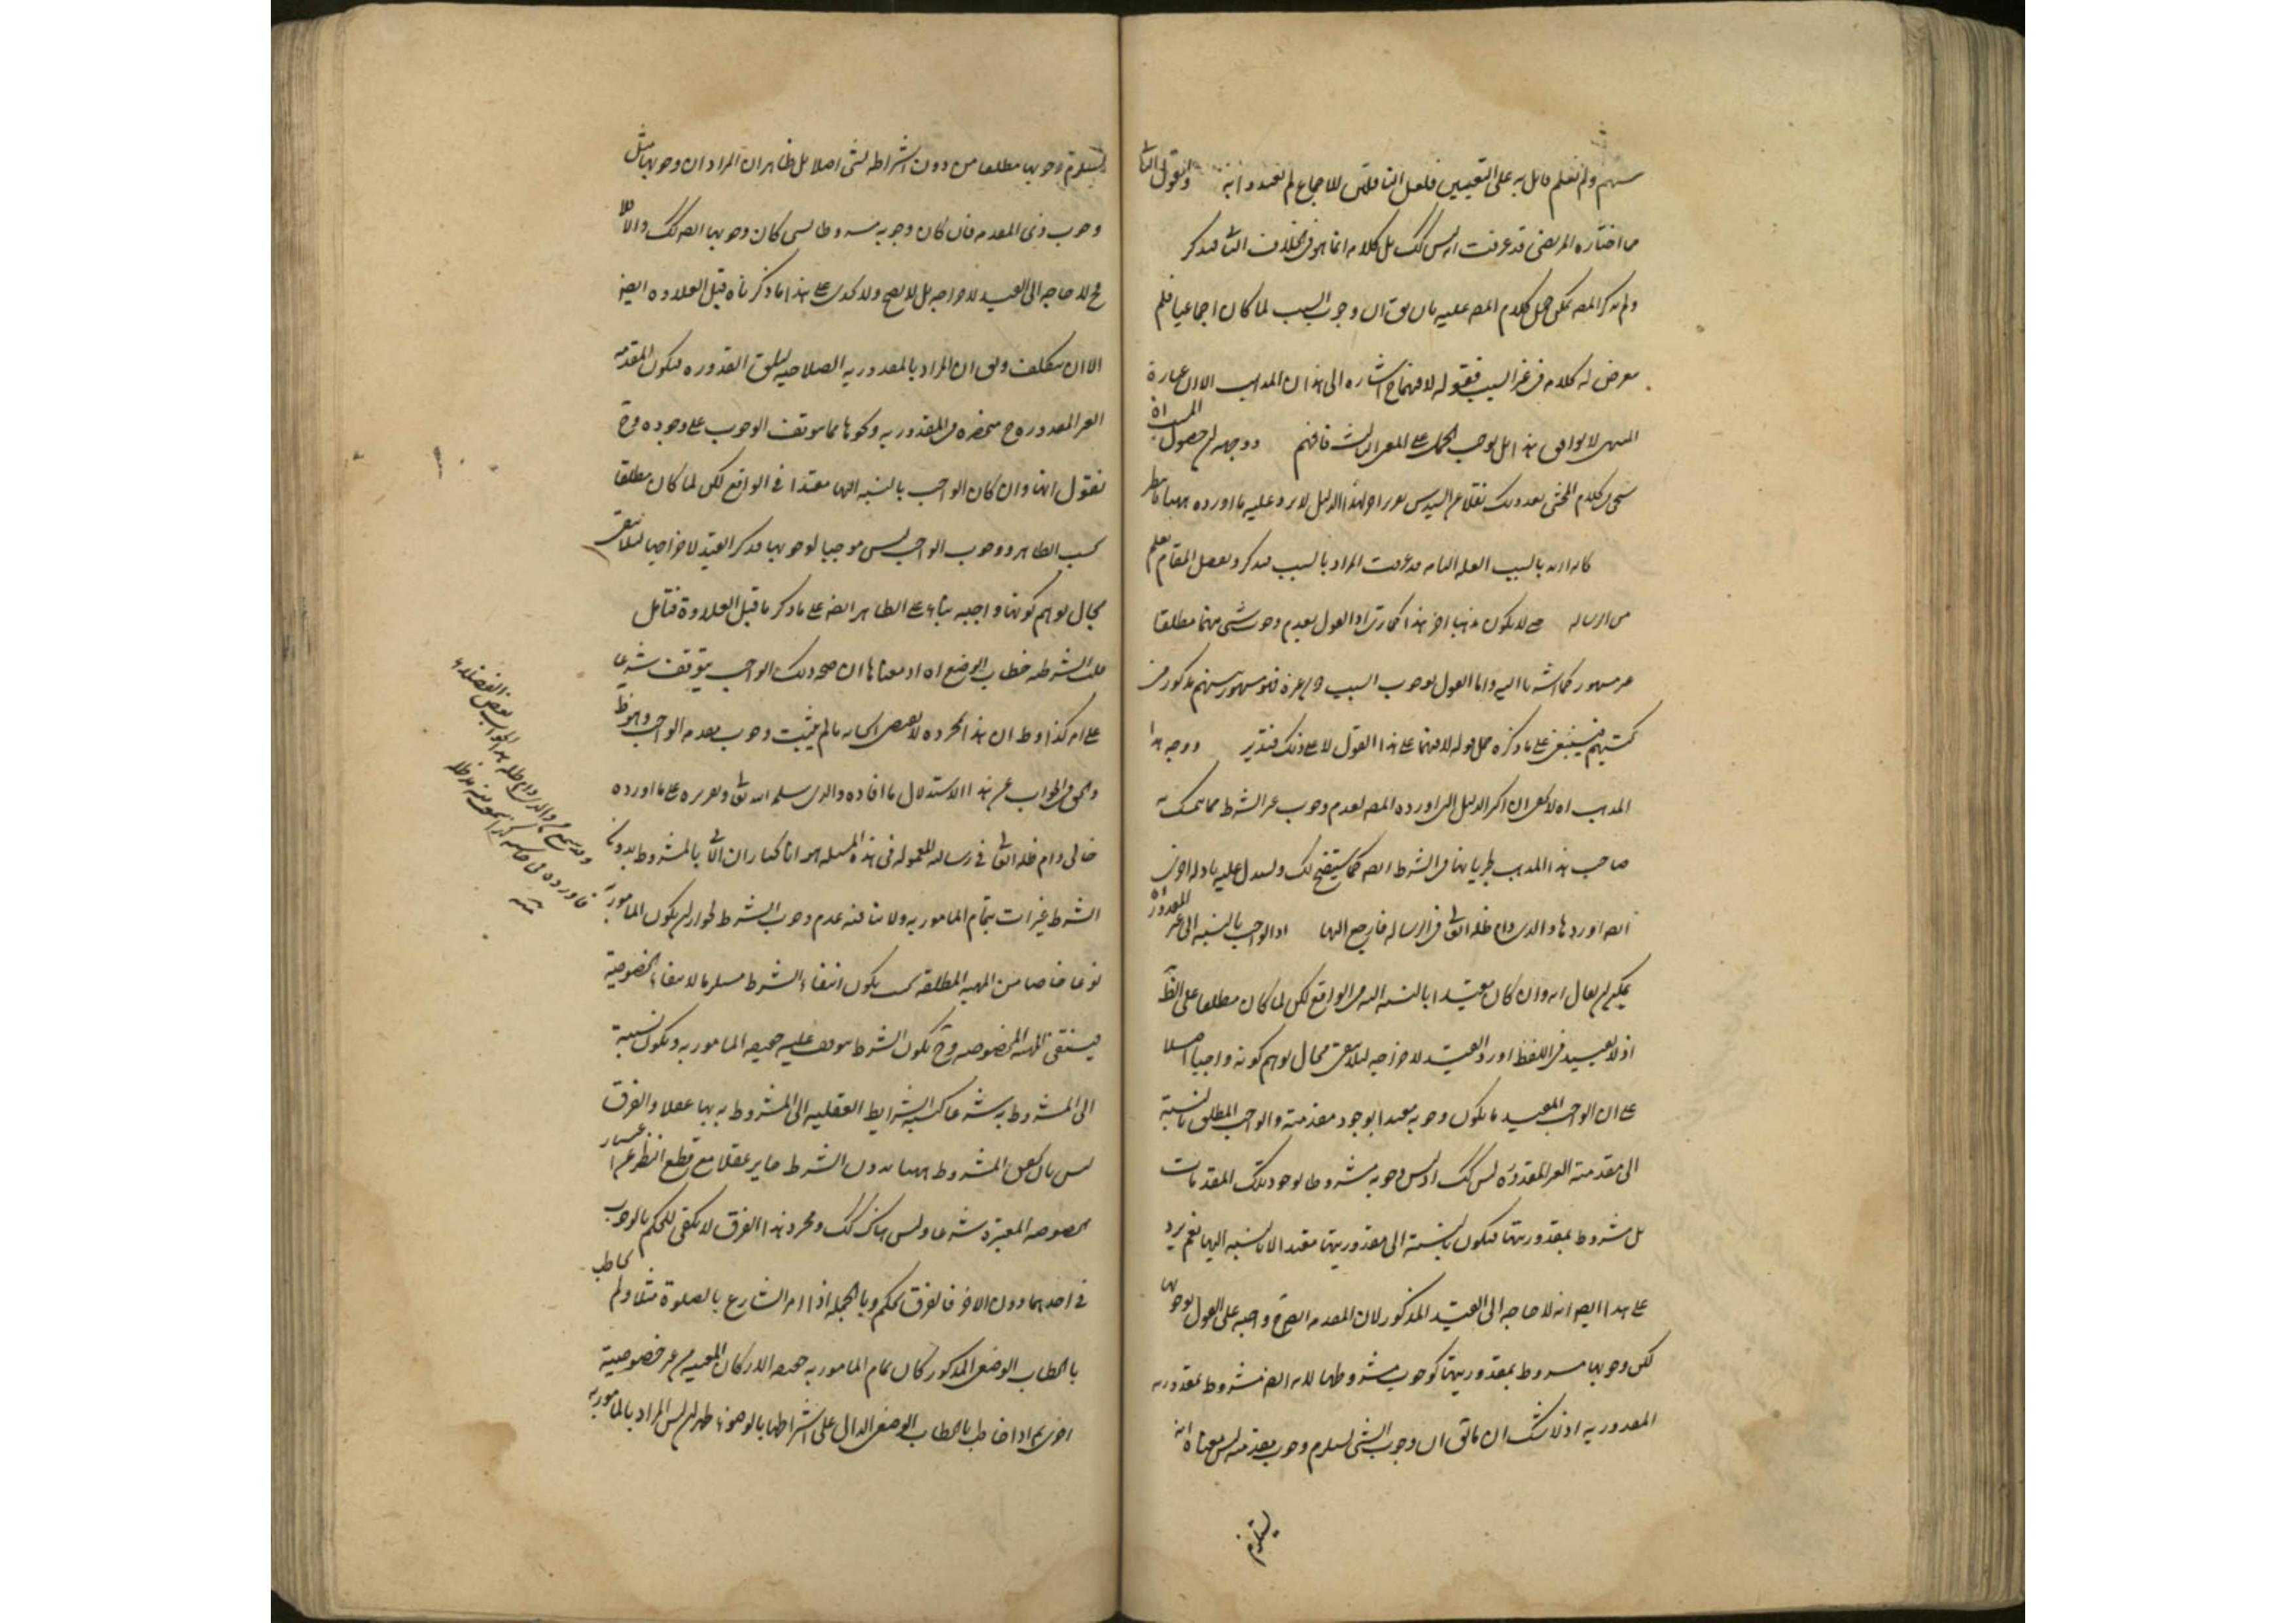 منهم ولم نعلم قائل به على التعيين فلعل الناقلين للاجماع لم يعتدوا به والقول الثا
ما اختاره المرتضى قد عرفت انه ليس كك بل كلامه انما هو في خلاف الثا فتذكر
ولم يذكر المصـ يمكن حمل كلام المصـ عليه بان يق ان وجوب السبب لما كان اجماعيا فلم
يتعرض له كلامه في غير السبب فقوله لا فيهما ح اشاره الى هذا المذهب الا ان عبارة
المنتهى لا يوافق هذا بل يوجب الحمل على المعنى الثالث فافهم ووجهه ان حصول المسبب اه
سيجئ في كلام المحشى بعد ذلك نقلا عن السيد س لهذا الدليل لا يرد عليه ما اورده ههنا
كانه اراد بالسبب العلة التامه قد عرفت المراد بالسبب فتذكر وتفصيل المقام يعلم
من الرساله حتى لا يكون مذهبا اخر هذا كما ترى اذ القول بعدم وجوب شئ منهما مطلقا
غير مشهور كما اشرنا اليه واما القول بوجوب السبب دون غيره فهو مشهور بينهم مذكور في
كتبهم فينبغى على ما ذكره حمل قوله لا فيهما على هذا القول لا على ذلك فتدبر ووجه هذا
المذهب اه لا يخفى ان اكثر الدليل الذى اورده المصـ لعدم وجوب غير الشرط مما يتمسك به
صاحب هذا المذهب لجريانها في الشرط ايضـ كما سيتضح لك ويستدل عليه بادلة اخرى
ايضـ اوردها والدى دام ظله العا في الرساله فارجع اليها اذ الواجب بالنسبه الى غير المقدور اه
يمكن ان يقال انه وان كان مقيدا بالنسبه اليه في الواقع لكن لما كان مطلقا على الظ
اذ لا تقييد في اللفظ اورد القيد لاخراجه لئلا يبقى مجال توهم كونه واجبا اصلا
على ان الواجب المقيد ما يكون وجوبه مقيدا بوجود مقدمته والواجب المطلق بالنسبة
الى مقدمته الغير المقدوره ليس كك اذ ليس وجوبه مشروطا بوجود تلك المقدمات
بل مشروط بمقدوريتها فيكون بالنسبة الى مقدوريتها مقيدا لا بالنسبه اليها نعم يرد
على هذا ايضـ انه لا حاجه الى القيد المذكور لان المقدمه ايضـ ح واجبه على القول بوجوبها
لكن وجوبها مشروط بمقدوريتها كوجوب مشروطها لانه ايضـ مشروط بمقدوريه
المقدوريه اذ لا شك ان ما يق ان وجوب الشئ يستلزم وجوب مقدمته ليس معناه انه
يستلزم
يستلزم وجوبها مطلقا من دون اشتراطه بشئ اصلا بل ظاهر ان المراد ان وجوبها مثل
وجوب ذى المقدمه فان كان وجوبه مشروطا بشئ كان وجوبها ايضـ كك والا فلا
فح لا حاجه الى القيد لاخراجه بل لا يصح ولا يجدى على هذا ما ذكرناه قبل العلاوه ايضـ
الا ان يتكلف ويق ان المراد بالمقدوريه الصلاحيه لتعلق القدوره فيكون المقدمه
الغير المقدوره ح منحصره في المقدوريه ونحوها مما يتوقف الوجوب على وجوده وح
نقول انها وان كان الواجب بالنسبه اليها مقيدا في الواقع لكن لما كان مطلقا
بحسب الظاهر ووجوب الواجب ليس موجبا لوجوبها فذكر القيد لاخراجها لئلا يبقى
مجال توهم كونها واجبه بناء على الظاهر ايضـ على ما ذكر ما قبل العلاوة فتامل
قلت الشرطيه خطاب الوضع اه اذ معناها ان صحة ذلك الواجب يتوقف شرعا
على امر كذا وظ ان هذا بمجرده لا يقتضى ايجابه ما لم يثبت وجوب مقدمه الواجب وهو ظ
والحق في الجواب عن هذا الاستدلال ما افاده والدى سلمه الله تعا وتقريره على ما اورده
خالى دام ظله العا في رساله المعموله في هذه المسئله هو انا نختار ان الاتى بالمشروط بدون
الشرط غير ات بتمام المامور به ولا ينافيه عدم وجوب الشرط لجواز ان يكون المامور به
نوعا خاصا من المهيه المطلقه بحيث يكون انتفاء الشرط مستلزما لانتفاء الخصوصية
فينتفى المهيه المخصوصه وح يكون الشرط موقوف عليه حقيقه المامور به ويكون نسبته
الى المشروط به شرعا كنسبة الشرايط العقليه الى المشروط به بها عقلا والفرق
ليس بان تحقق المشروط ههنا بدون الشرط جايز عقلا مع قطع النظر عن اعتبار
الخصوصه المعتبرة شرعا وليس هناك كك ومجرد هذا الفرق لا يكفى للحكم بالوجوب
في احدهما دون الاخر فالفرق تحكم وبالجمله اذا امر الشارع بالصلوة مثلا ولم يخاطب
بالخطاب الوضعى المذكور كان تمام المامور به حقيقه الاركان المعينه من غير خصوصية
اخرى ثم اذا خاطب بالخطاب الوضعى الدال على اشتراطها بالوضوء ظهر ان ليس المراد بالمامور به
والدى دام ظله هذا الجواب بعض الفضلاء
منه